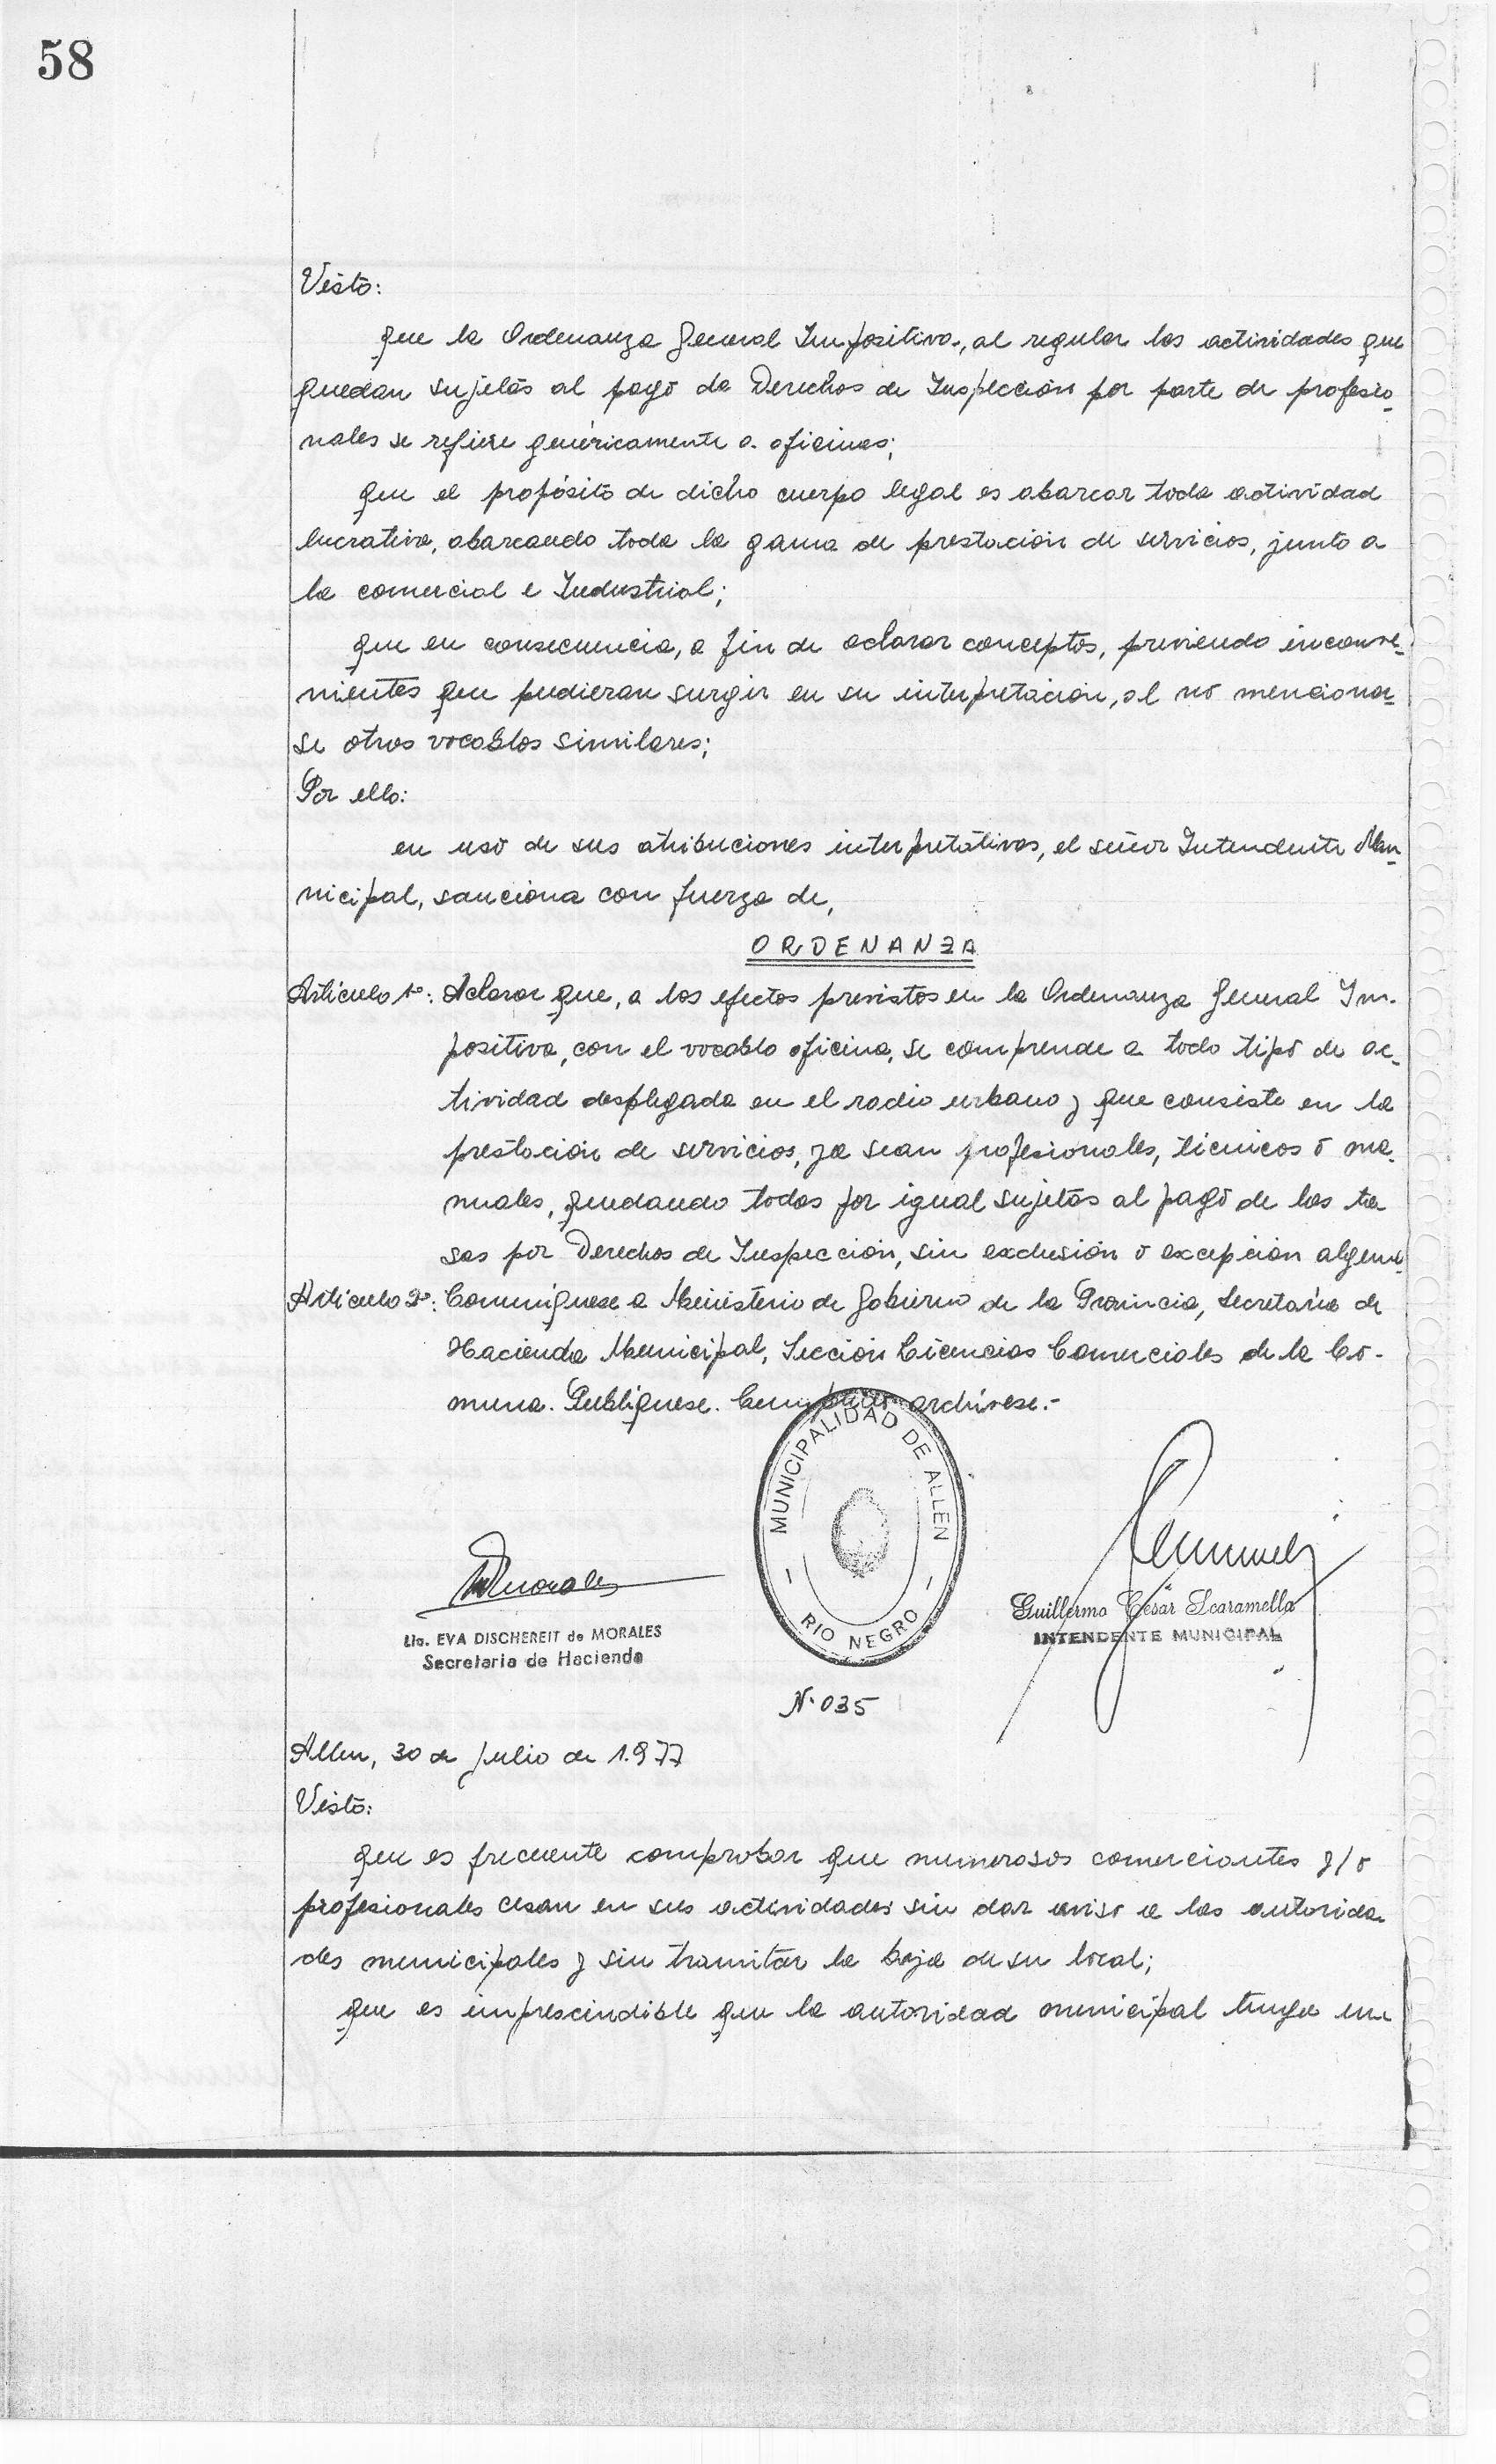 58
Visto:
que la Ordenanza General Impositiva, al regular las actividades que
quedan sujetas al pago de Derechos de Inspección por parte de profesio-
nales se refiere genéricamente a oficinas;
que el propósito de dicho cuerpo legal es abarcar toda actividad
lucrativa, abarcando toda la gama de prestación de servicios, junto a
la comercial e Industrial;
que en consecuencia, a fin de aclarar conceptos, previendo inconve-
nientes que pudieran surgir en su interpretación, al no mencionar-
se otros vocablos similares;
Por ello:
en uso de sus atribuciones interpretativas, el señor Intendente Mu-
nicipal, sanciona con fuerza de,
ORDENANZA
Artículo 1º: Aclarar que, a los efectos previstos en la Ordenanza General Im-
positiva, con el vocablo oficina, se comprende a todo tipo de ac-
tividad desplegada en el radio urbano y que consiste en la
prestación de servicios, ya sean profesionales, técnicos o ma-
nuales, quedando todos por igual sujetos al pago de las ta
sas por Derechos de Inspección, sin exclusión o excepción alguna.
Artículo 2º: Comuníquese a Ministerio de Gobierno de la Provincia, Secretaría de
Hacienda Municipal, Sección Licencias Comerciales de la Co-
muna. Publíquese. archívese.-
MUNICIPALIDAD DE ALLEN
- RIO NEGRO -
Lic. EVA DISCHEREIT de MORALES
Secretaria de Hacienda
Guillermo César Scaramella
INTENDENTE MUNICIPAL
Nº 035
Allen, 30 de Julio de 1.977
Visto:
que es frecuente comprobar que numerosos comerciantes y/o
profesionales cesan en sus actividades sin dar aviso a las autorida-
des municipales y sin tramitar la baja de su local;
que es imprescindible que la autoridad municipal tenga un